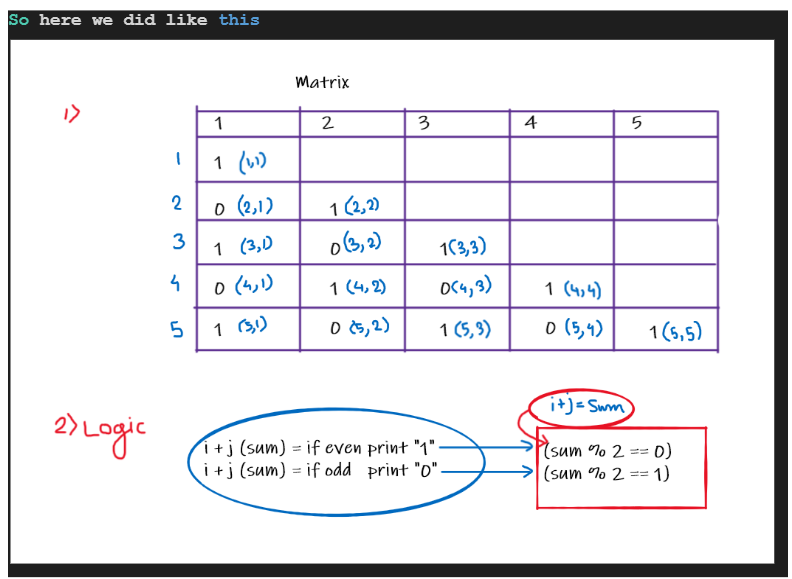 So here we did like this
Matrix
1)
1 2 3 4 5
1 1 (1,1)
2 0 (2,1) 1 (2,2)
3 1 (3,1) 0 (3,2) 1 (3,3)
4 0 (4,1) 1 (4,2) 0 (4,3) 1 (4,4)
5 1 (5,1) 0 (5,2) 1 (5,3) 0 (5,4) 1 (5,5)
i+j = Sum
2) Logic
i + j (sum) = if even print "1" (sum % 2 == 0)
i + j (sum) = if odd print "0" (sum % 2 == 1)